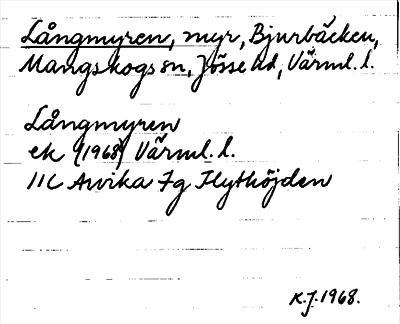 Långmyren, myr, Bjurbäcken,
Mangskogs sn, Jösse hd, Värml. l.
Långmyren
ek (1968) Värml. l.
11C Arvika 7g Flythöjden
K.J. 1968.